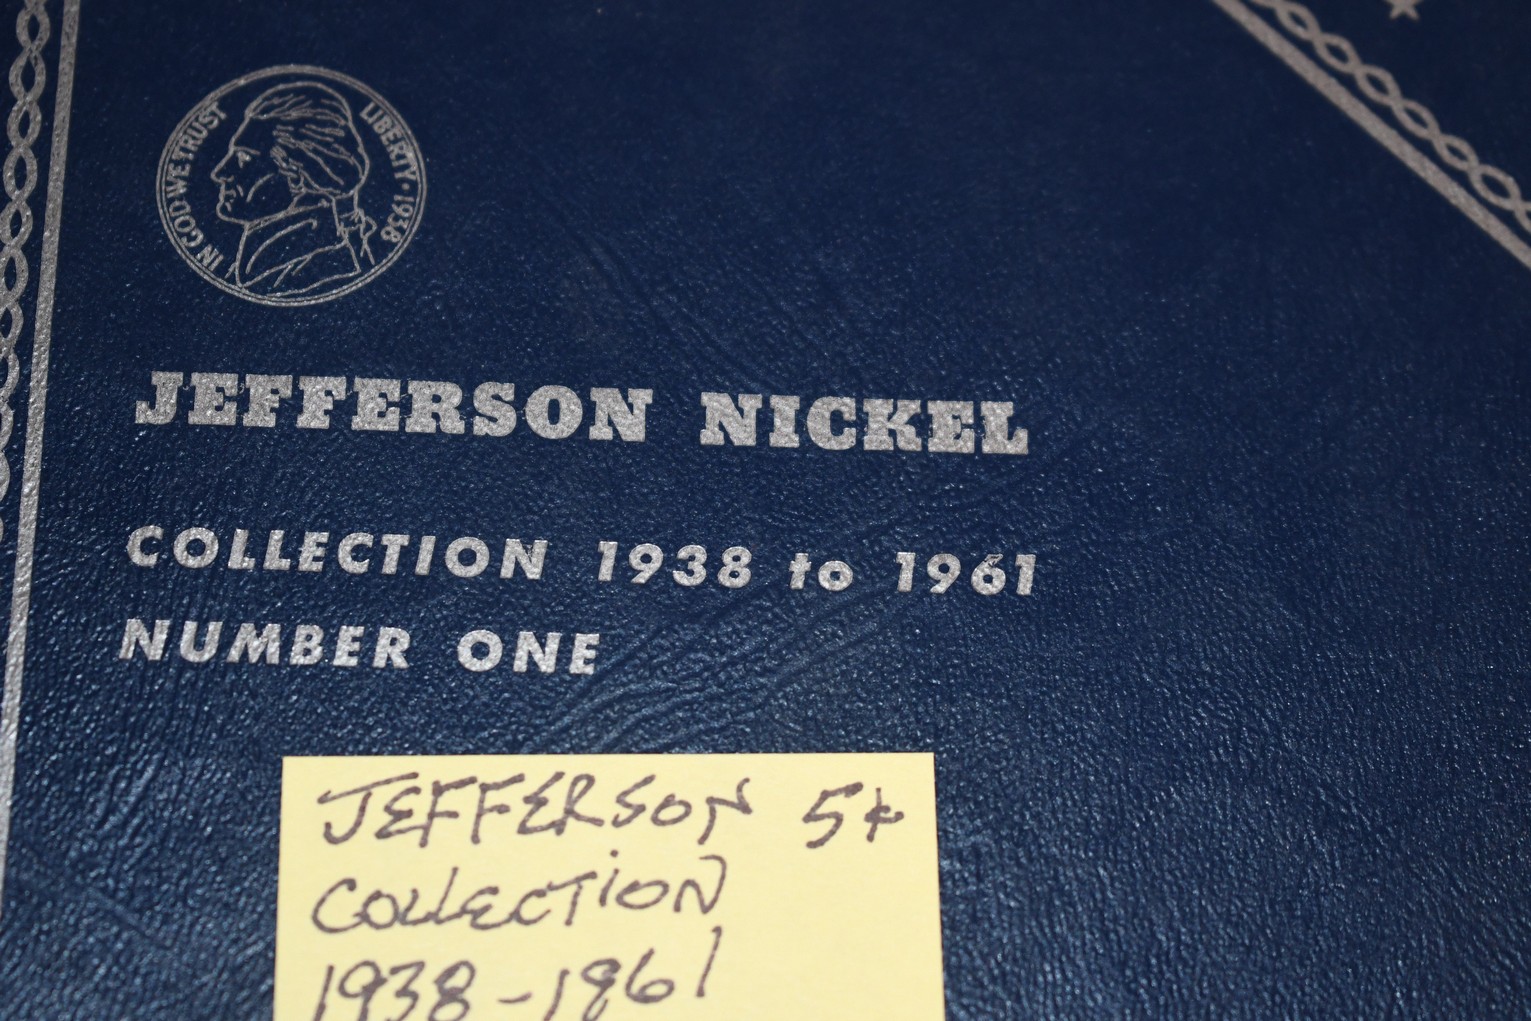 IN GOD WE TRUST
LIBERTY · 1938
JEFFERSON NICKEL
COLLECTION 1938 to 1961
NUMBER ONE
JEFFERSON 5¢
COLLECTION
1938-1961